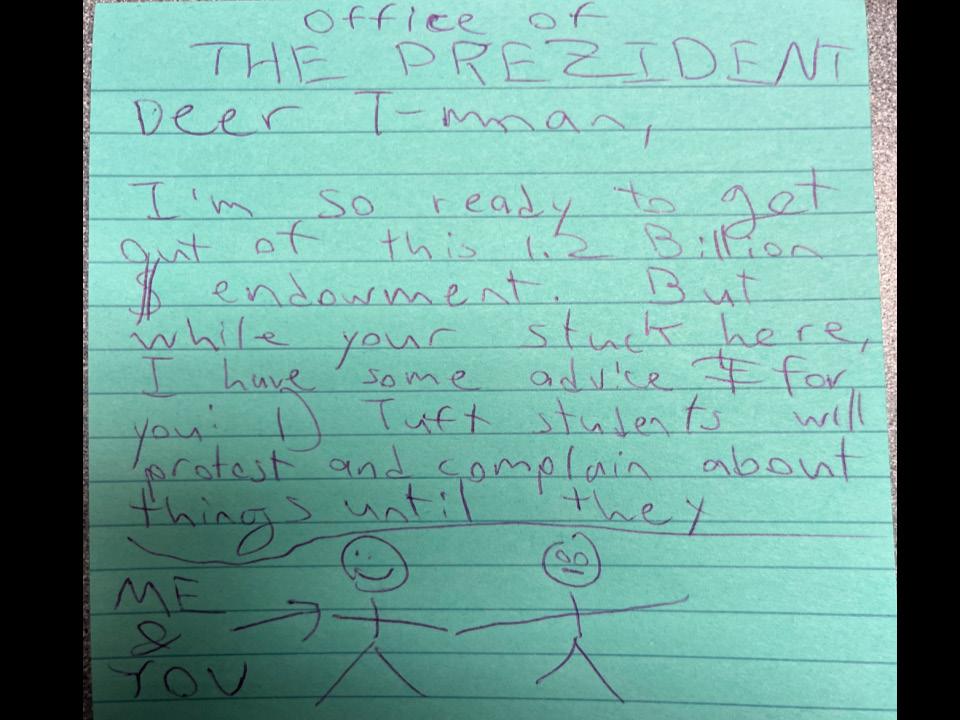 Office of
THE PREZIDENT
Deer T-mman,
I'm so ready to get
out of this 1.2 Billion
$ endowment. But
while your stuck here,
I have some advice for
you: 1) Tuft students will
protest and complain about
things until they
ME
&
YOU